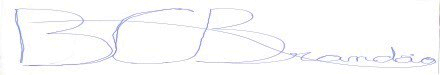 BCBrandão